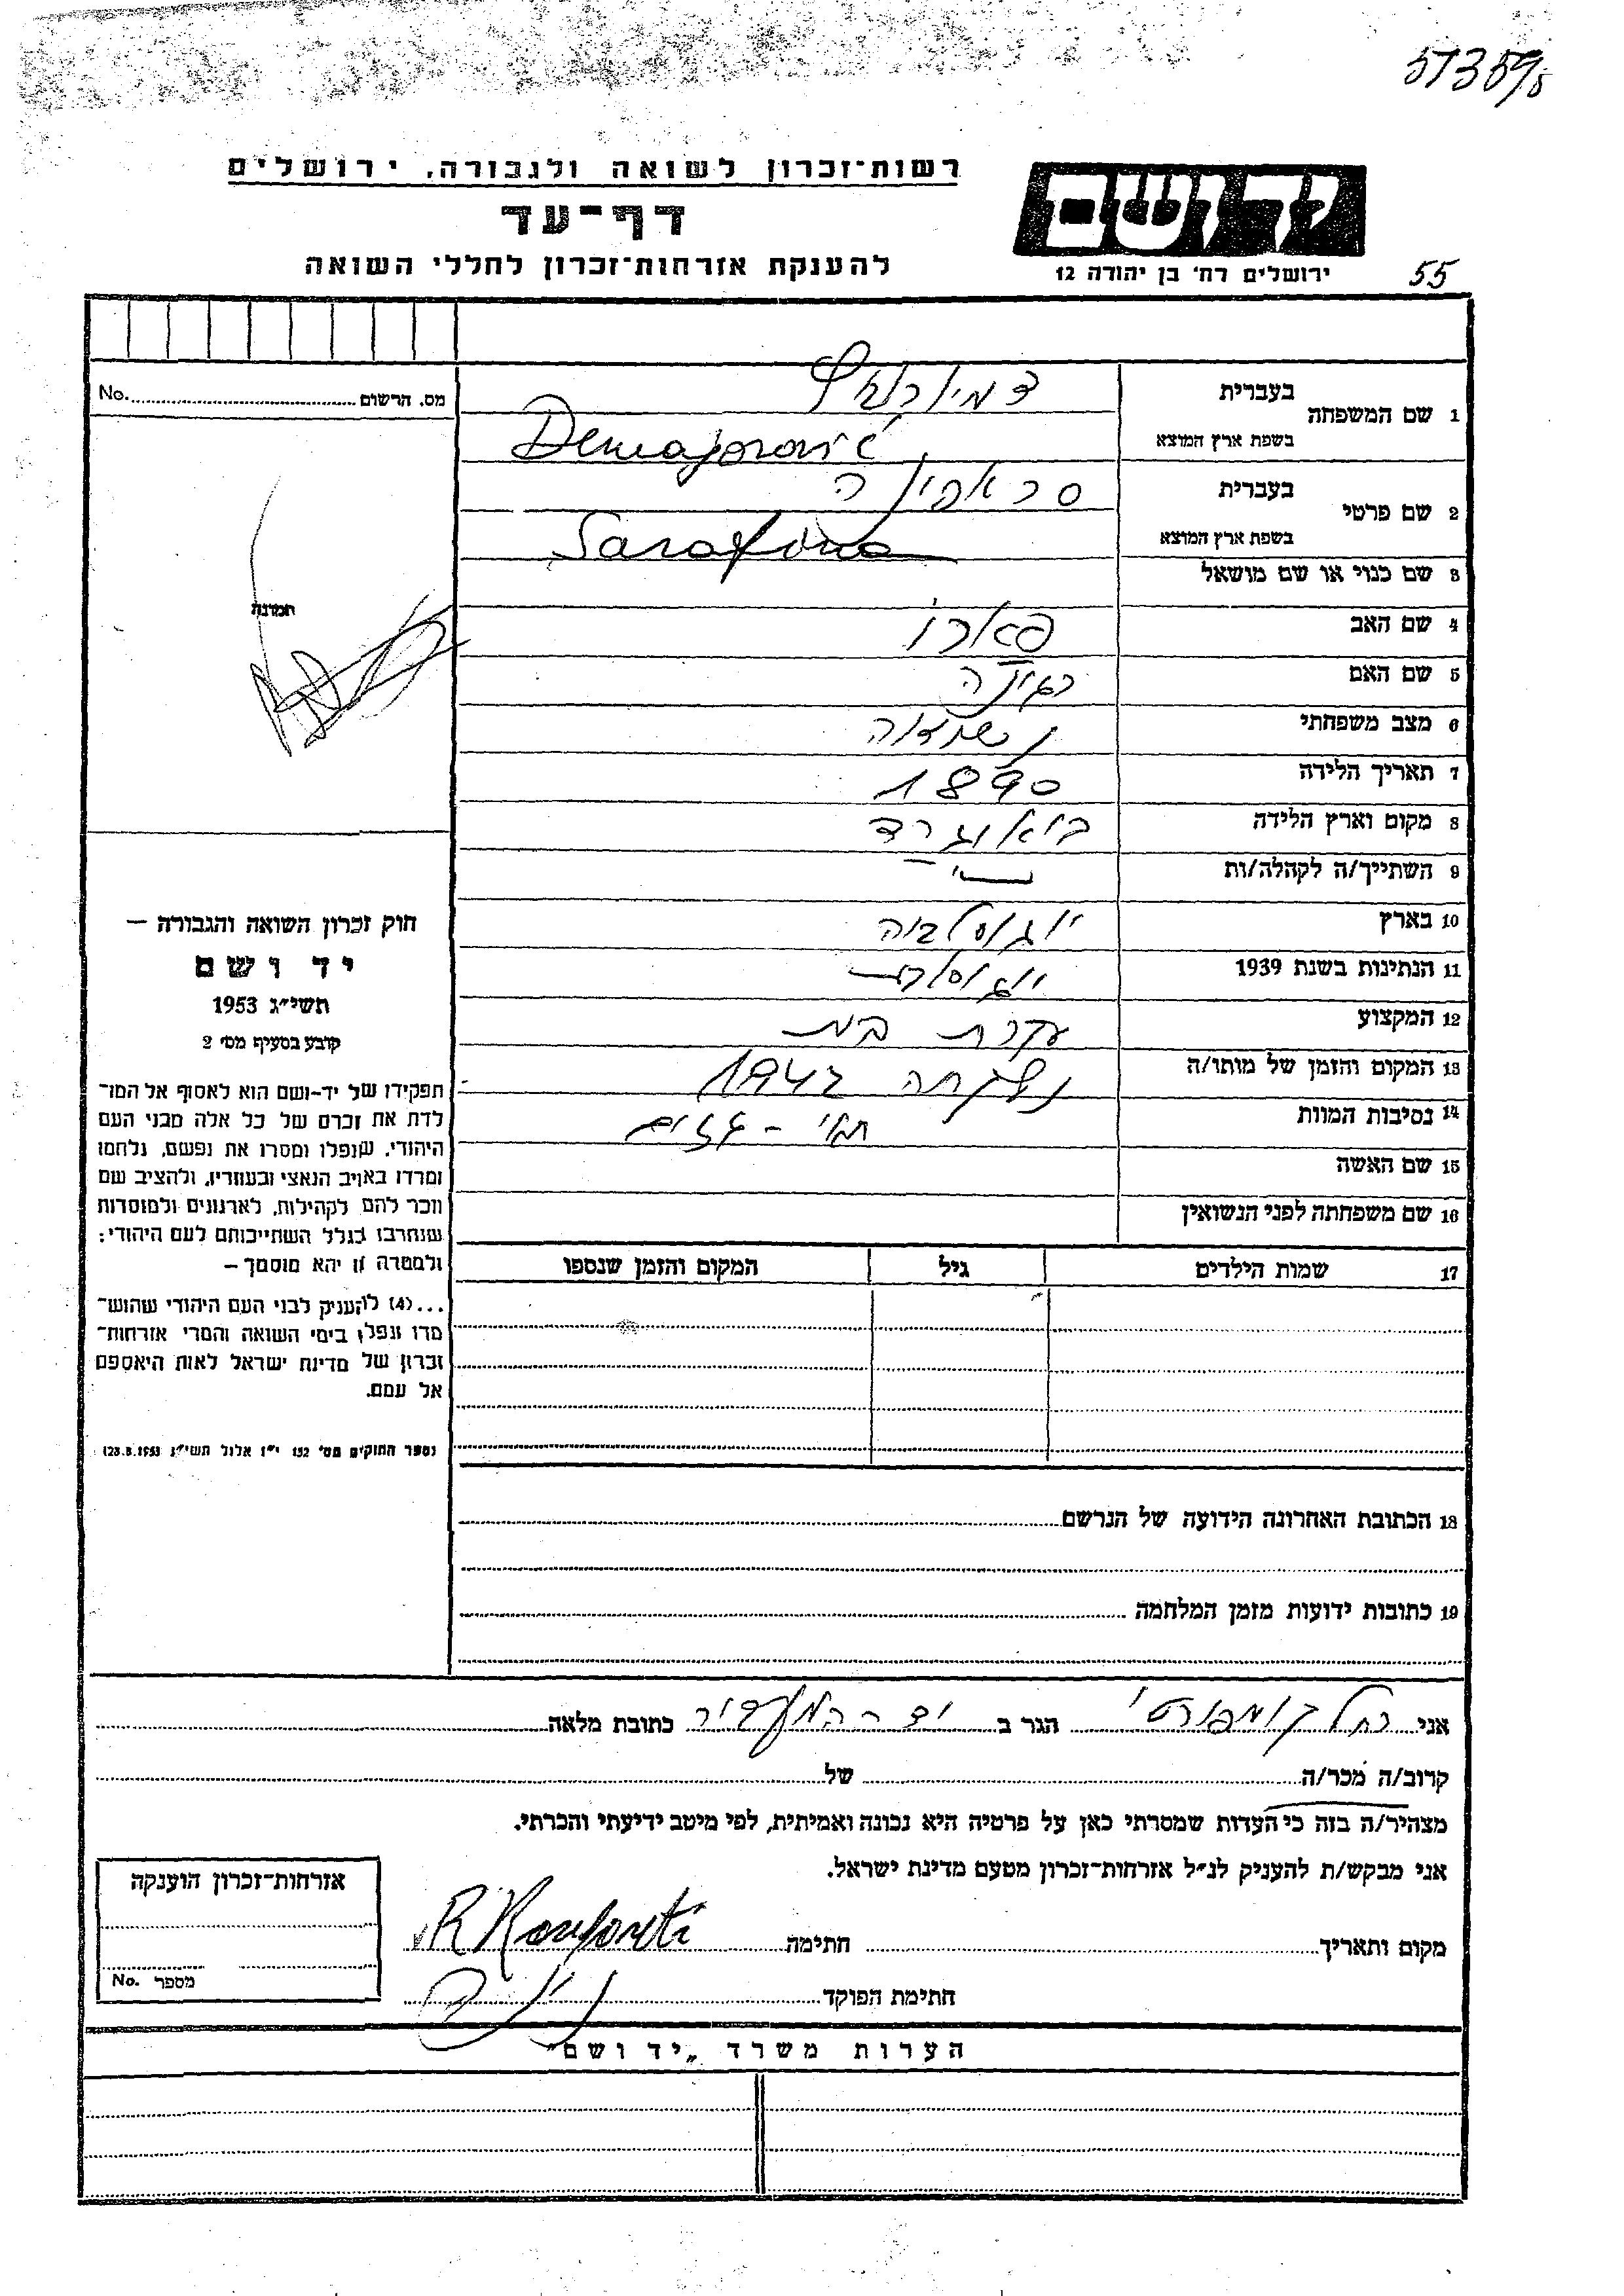 57359
רשות־זכרון לשואה ולגבורה, ירושלים
דף־עד
להענקת אזרחות־זכרון לחללי השואה
יד ושם
ירושלים רח׳ בן יהודה 12
55
מס. הרשום No.
תמונה
1 שם המשפחה
בעברית
בשפת ארץ המוצא Demajorović
2 שם פרטי
בעברית סראפינה
בשפת ארץ המוצא Sarafina
3 שם כנוי או שם מושאל
4 שם האב
5 שם האם רגינה
6 מצב משפחתי נשואה
7 תאריך הלידה 1890
8 מקום וארץ הלידה ביאוגרד
9 השתייך/ה לקהלה/ות
10 בארץ יוגוסלביה
11 הנתינות בשנת 1939 יוגוסלבית
12 המקצוע עקרת בית
13 המקום והזמן של מותו/ה 1942
14 נסיבות המוות תאי - גזים
15 שם האשה
16 שם משפחתה לפני הנשואין
17 שמות הילדים גיל המקום והזמן שנספו
חוק זכרון השואה והגבורה –
יד ושם
תשי״ג 1953
קובע בסעיף מס׳ 2
תפקידו של יד-ושם הוא לאסוף אל המו־
לדת את זכרם של כל אלה מבני העם
היהודי, שנפלו ומסרו את נפשם, נלחמו
ומרדו באויב הנאצי ובעוזריו, ולהציב שם
וזכר להם לקהילות, לארגונים ולמוסדות
שנחרבו בגלל השתייכותם לעם היהודי;
ולמטרה זו יהא מוסמך –
...(4) להעניק לבני העם היהודי שהוש־
מדו ונפלו בימי השואה והמרי אזרחות־
זכרון של מדינת ישראל לאות היאספם
אל עמם.
(ספר החוקים מס׳ 132 י״ז אלול תשי״ג 28.8.1953)
18 הכתובת האחרונה הידועה של הנרשם
19 כתובות ידועות מזמן המלחמה
אני רחל קומפורטי הגר ב כתובת מלאה
קרוב/ה מכר/ה של
מצהיר/ה בזה כי העדות שמסרתי כאן על פרטיה היא נכונה ואמיתית, לפי מיטב ידיעתי והכרתי.
אני מבקש/ת להעניק לנ״ל אזרחות־זכרון מטעם מדינת ישראל.
מקום ותאריך חתימה R Konforti
חתימת הפוקד
אזרחות־זכרון הוענקה
מספר No.
הערות משרד „יד ושם״